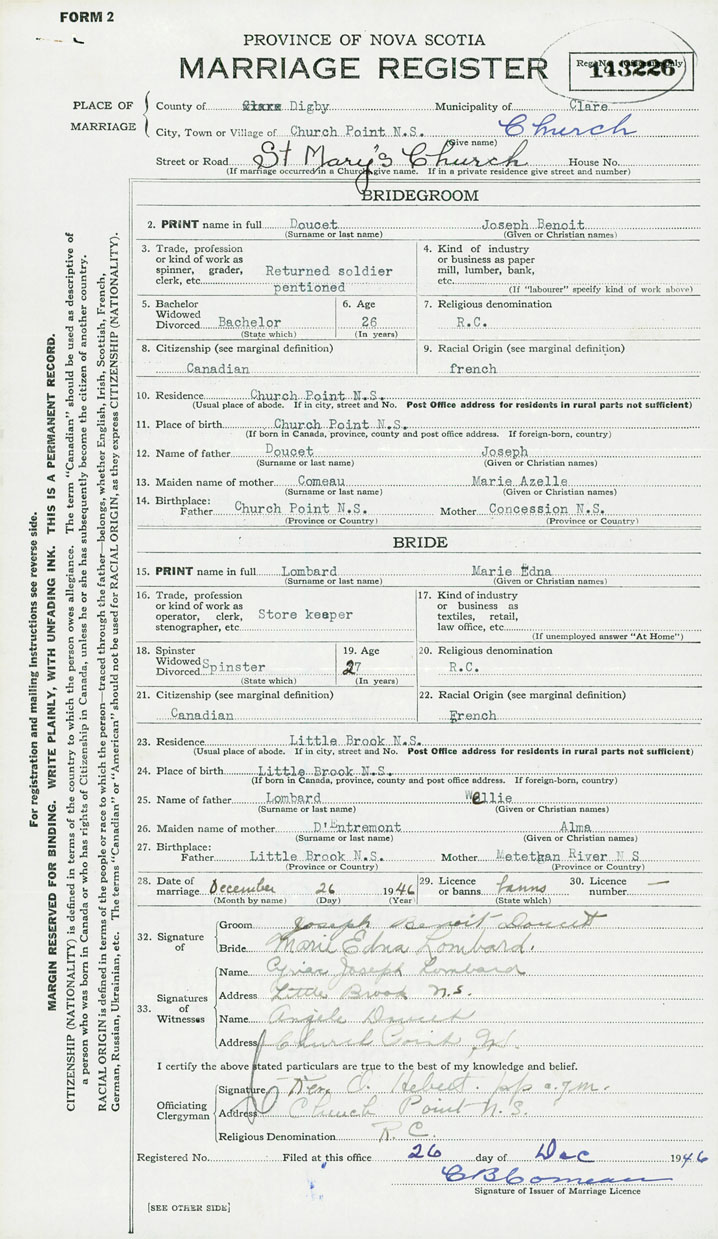 FORM 2
PROVINCE OF NOVA SCOTIA
MARRIAGE REGISTER
143226
PLACE OF MARRIAGE
County of Clare Digby Municipality of Clare
City, Town or Village of Church Point N.S. Church
(Give name)
Street or Road St Mary's Church House No.
(If marriage occurred in a Church give name. If in a private residence give street and number)
BRIDEGROOM
2. PRINT name in full Doucet Joseph Benoit
(Surname or last name) (Given or Christian names)
3. Trade, profession or kind of work as spinner, grader, clerk, etc. Returned soldier pentioned
4. Kind of industry or business as paper mill, lumber, bank, etc.
(If "labourer" specify kind of work above)
5. Bachelor Widowed Divorced Bachelor
(State which)
6. Age 26
(In years)
7. Religious denomination R.C.
8. Citizenship (see marginal definition) Canadian
9. Racial Origin (see marginal definition) french
10. Residence Church Point N.S.
(Usual place of abode. If in city, street and No. Post Office address for residents in rural parts not sufficient)
11. Place of birth Church Point N.S.
(If born in Canada, province, county and post office address. If foreign-born, country)
12. Name of father Doucet Joseph
(Surname or last name) (Given or Christian names)
13. Maiden name of mother Comeau Marie Azelle
(Surname or last name) (Given or Christian names)
14. Birthplace: Father Church Point N.S. Mother Concession N.S.
(Province or Country) (Province or Country)
BRIDE
15. PRINT name in full Lombard Marie Edna
(Surname or last name) (Given or Christian names)
16. Trade, profession or kind of work as operator, clerk, stenographer, etc. Store keeper
17. Kind of industry or business as textiles, retail, law office, etc.
(If unemployed answer "At Home")
18. Spinster Widowed Divorced Spinster
(State which)
19. Age 27
(In years)
20. Religious denomination R.C.
21. Citizenship (see marginal definition) Canadian
22. Racial Origin (see marginal definition) French
23. Residence Little Brook N.S.
(Usual place of abode. If in city, street and No. Post Office address for residents in rural parts not sufficient)
24. Place of birth Little Brook N.S.
(If born in Canada, province, county and post office address. If foreign-born, country)
25. Name of father Lombard Wellie
(Surname or last name) (Given or Christian names)
26. Maiden name of mother D'Entremont Alma
(Surname or last name) (Given or Christian names)
27. Birthplace: Father Little Brook N.S. Mother Metetghan River N S
(Province or Country) (Province or Country)
28. Date of marriage December 26 1946
(Month by name) (Day) (Year)
29. Licence or banns banns
(State which)
30. Licence number —
32. Signature of
Groom Joseph Benoit Doucett
Bride Marie Edna Lombard.
33. Signatures of Witnesses
Name Joseph Lombard
Address Little Brook N.S.
Name Angele Doucet
Address Church Point
I certify the above stated particulars are true to the best of my knowledge and belief.
Officiating Clergyman
Signature Rev. Hebert. p/p
Address Church Point N.S.
Religious Denomination R.C.
Registered No. Filed at this office 26 day of Dec 1946
C B Comeau
Signature of Issuer of Marriage Licence
[SEE OTHER SIDE]
For registration and mailing instructions see reverse side.
MARGIN RESERVED FOR BINDING. WRITE PLAINLY, WITH UNFADING INK. THIS IS A PERMANENT RECORD.
CITIZENSHIP (NATIONALITY) is defined in terms of the country to which the person owes allegiance. The term "Canadian" should be used as descriptive of
a person who was born in Canada or who has rights of Citizenship in Canada, unless he or she has subsequently become the citizen of another country.
RACIAL ORIGIN is defined in terms of the people or race to which the person—traced through the father—belongs, whether English, Irish, Scottish, French,
German, Russian, Ukrainian, etc. The terms "Canadian" or "American" should not be used for RACIAL ORIGIN, as they express CITIZENSHIP (NATIONALITY).